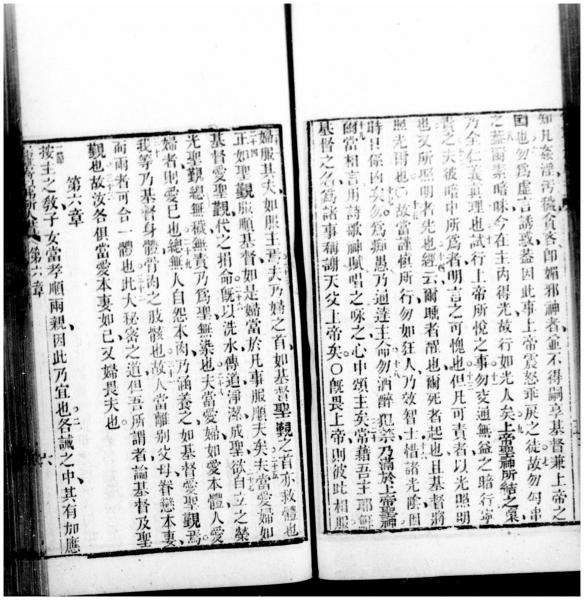 知凡姦淫污穢貪吝卽媚邪神者並不得嗣享基督兼上帝之
國也勿爲虛言誘惑蓋因此事上帝震怒乖戾之徒故勿勻串
之蓋爾素暗昧今在主內得光故行如光人矣上帝聖神所結之菓
乃全仁義眞理也試行上帝所悅之事勿交通無益之暗行寧
責之夫彼暗中所爲者明言之可愧也但凡可責者以光照明
也又所照明者光也經云爾睡者醒也爾死者起也且基督將
照光爾也○故當謹愼所行勿如狂人乃效智士措諸光陰因
時日係凶矣勿爲痴愚乃通達主命勿酒醉犯禁乃滿於上帝聖神
爾當相言用詩歌神賦唱之咏之心中頌主矣常藉吾主耶穌
基督之名爲諸事稱謝天父上帝矣○旣畏上帝則彼此相服
婦服其夫如服主焉夫乃婦之首如基督聖觀之首亦救體也
正如聖觀服順基督如是婦當於凡事服順夫矣夫當愛婦如
基督愛聖觀代之捐命旣以洗水傳道淨潔成聖欲自立之榮
光聖觀總無穢無責乃爲聖無染也夫當愛婦如愛本體人愛
婦者則愛己也總無人自怨本肉乃涵養之如基督愛聖觀焉
我等乃基督身體骨肉之肢骸也故人當離別父母眷戀本妻
而兩者可合一體也此大秘密之道但吾所謂者論基督及聖
觀也故汝各俱當愛本妻如己又婦畏夫也
第六章
按主之敎子女當孝順兩親因此乃宜也各誡之中其有加應
第六章
六